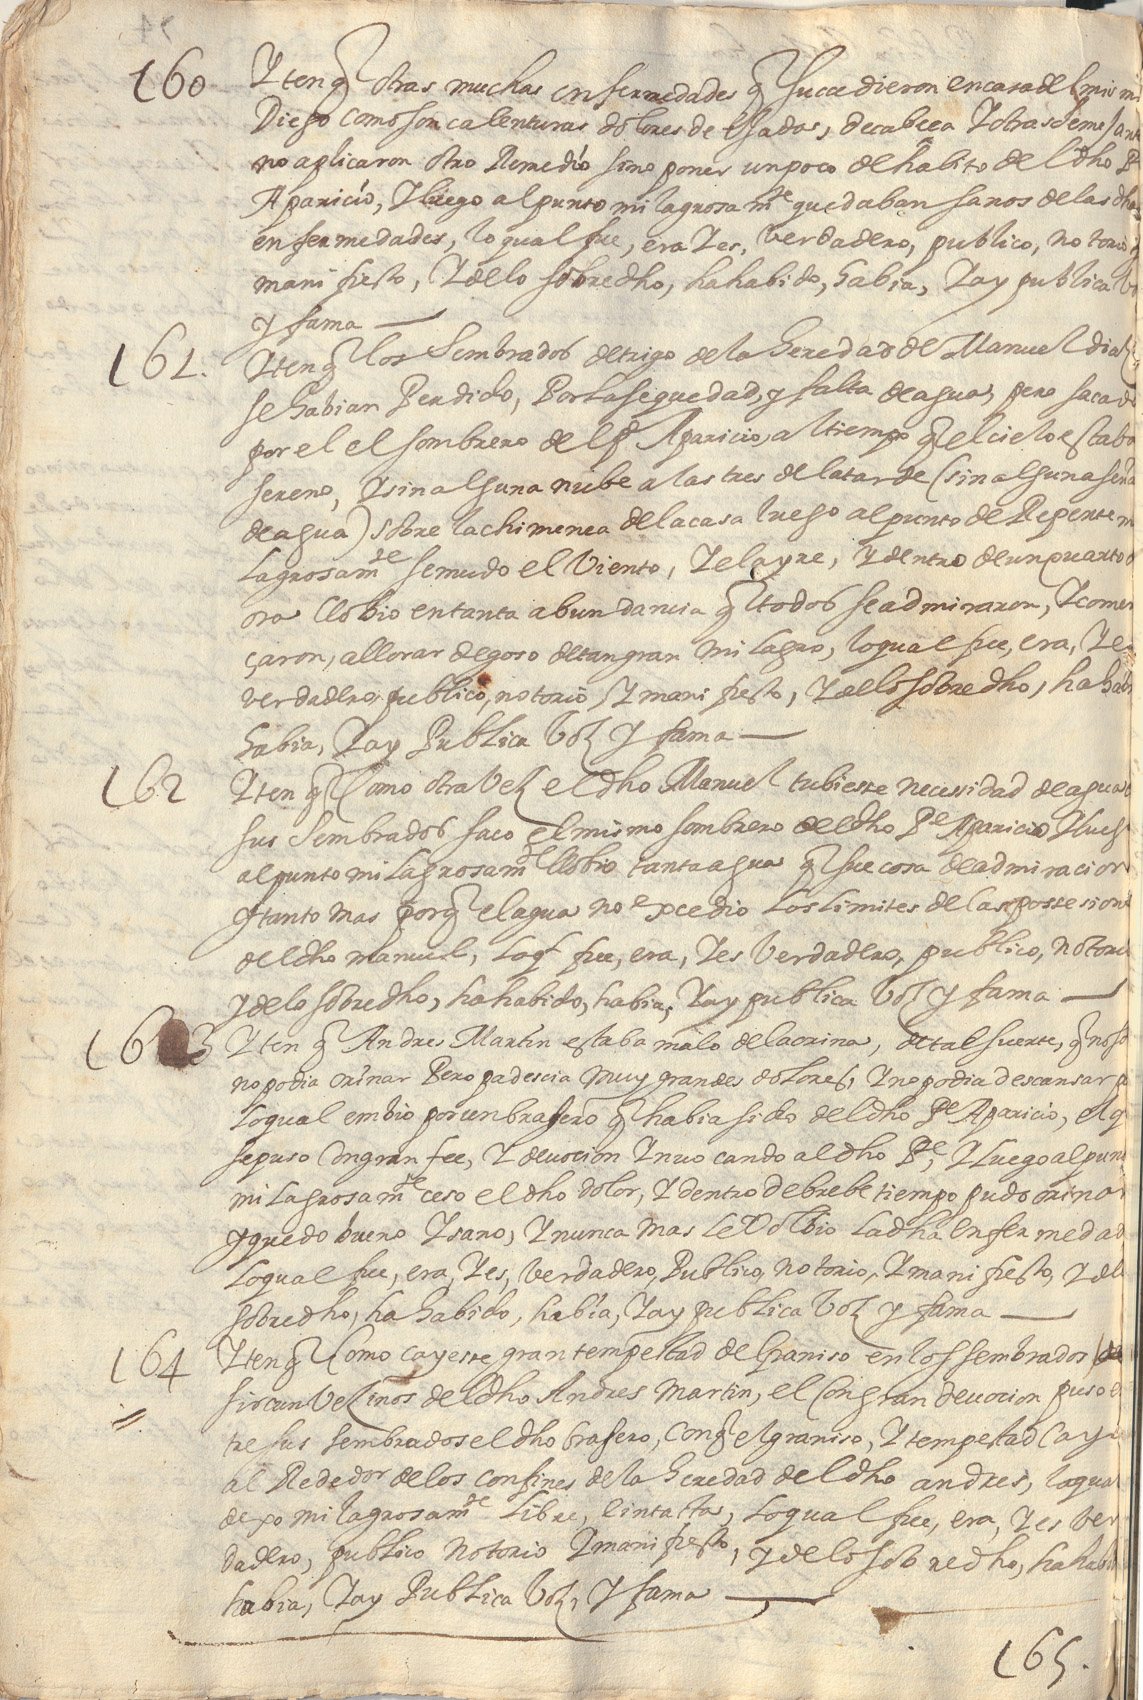 160 Yten q̃ otras muchas enfermedades q̃ succedieron en casa del mismo
Diego como son calenturas dolores de hijadas, de cabeça Y otras semejant
no aplicaron otro Remedio sino poner un poco del habito del dho P
Aparicio, Y luego al punto milagrosamte quedaban sanos de las dhas
enfermedades, lo qual fue, era Y es, verdadero, publico, notorio y
manifiesto, Y de lo sobredho, ha habido, habia, Y ay publica
y fama
161. Yten q̃ los Sembrados de trigo de la heredad de Manuel dias
se habian Perdido, Por la sequedad, y falta de agua, pero sacado
por el el sombrero del P Aparicio, al tiempo q̃ el cielo estaba
sereno, Y sin alguna nube a las tres de la tarde (sin alguna seña
de agua) sobre la chimenea de la casa luego al punto de Repente mi
lagrosamte se mudo el Viento, Y el ayre, Y dentro de un quarto
ora llobio en tanta abundancia q̃ todos se admiraron, Y comen
çaron, a llorar de goso de tan gran milagro, lo qual fue, era, Y es
verdadero, publico, notorio, Y manifiesto, Y de lo sobredho, ha habi
habia, Y ay Publica Voz Y fama
162 Yten q̃ Como otra Vez el dho Manuel tubiesse necessidad de agua
sus Sembrados saco el mismo sombrero del dho Pe Aparicio Y lueg
al punto milagrosamte llobio tanta agua q̃ fue cosa de admiracion
Y tanto mas porq̃ el agua no excedio los limites de las possesion
del dho manuel, loq̃ fue, era, Y es Verdadero, publico, notorio
Y de lo sobredho, ha habido, habia, Y ay publica Voz y fama
163 Yten q̃ Andres Martin estaba malo de la orina, de tal suerte, q̃ no so
no podia orinar Pero padescia muy grandes dolores, Y no podia descansar
Lo qual embio por un brasero q̃ habia sido del dho Pe Aparicio, el q
se puso Con gran fee, Y devocion Ynvocando al dho Pe, Y luego al punt
milagrosamte ceso el dho dolor, Y dentro de brebe tiempo pudo orinar
Y quedo bueno Y sano, Y nunca mas le Volbio la dha enfermedad
Lo qual fue, era, Y es, Verdadero, Publico, notorio, Y manifiesto, Y de lo
sobredho, ha habido, habia, Y ay publica Voz y fama
164 Yten q̃ Como cayesse gran tempestad de Graniso en los sembrados
sircunVecinos del dho Andres Martin, el Con gran devocion puso en
tre sus sembrados el dho brasero, Con q̃ el graniso, Y tempestad Cayo
al Rededor de los confines de la heredad del dho andres, lo qual
dexo milagrosamte libre, e intatta, Lo qual fue, era, Y es Ver
dadero, publico notorio Y manifiesto, Y de lo sobredho, ha habi
habia, Y ay Publica Voz, Y fama
165.